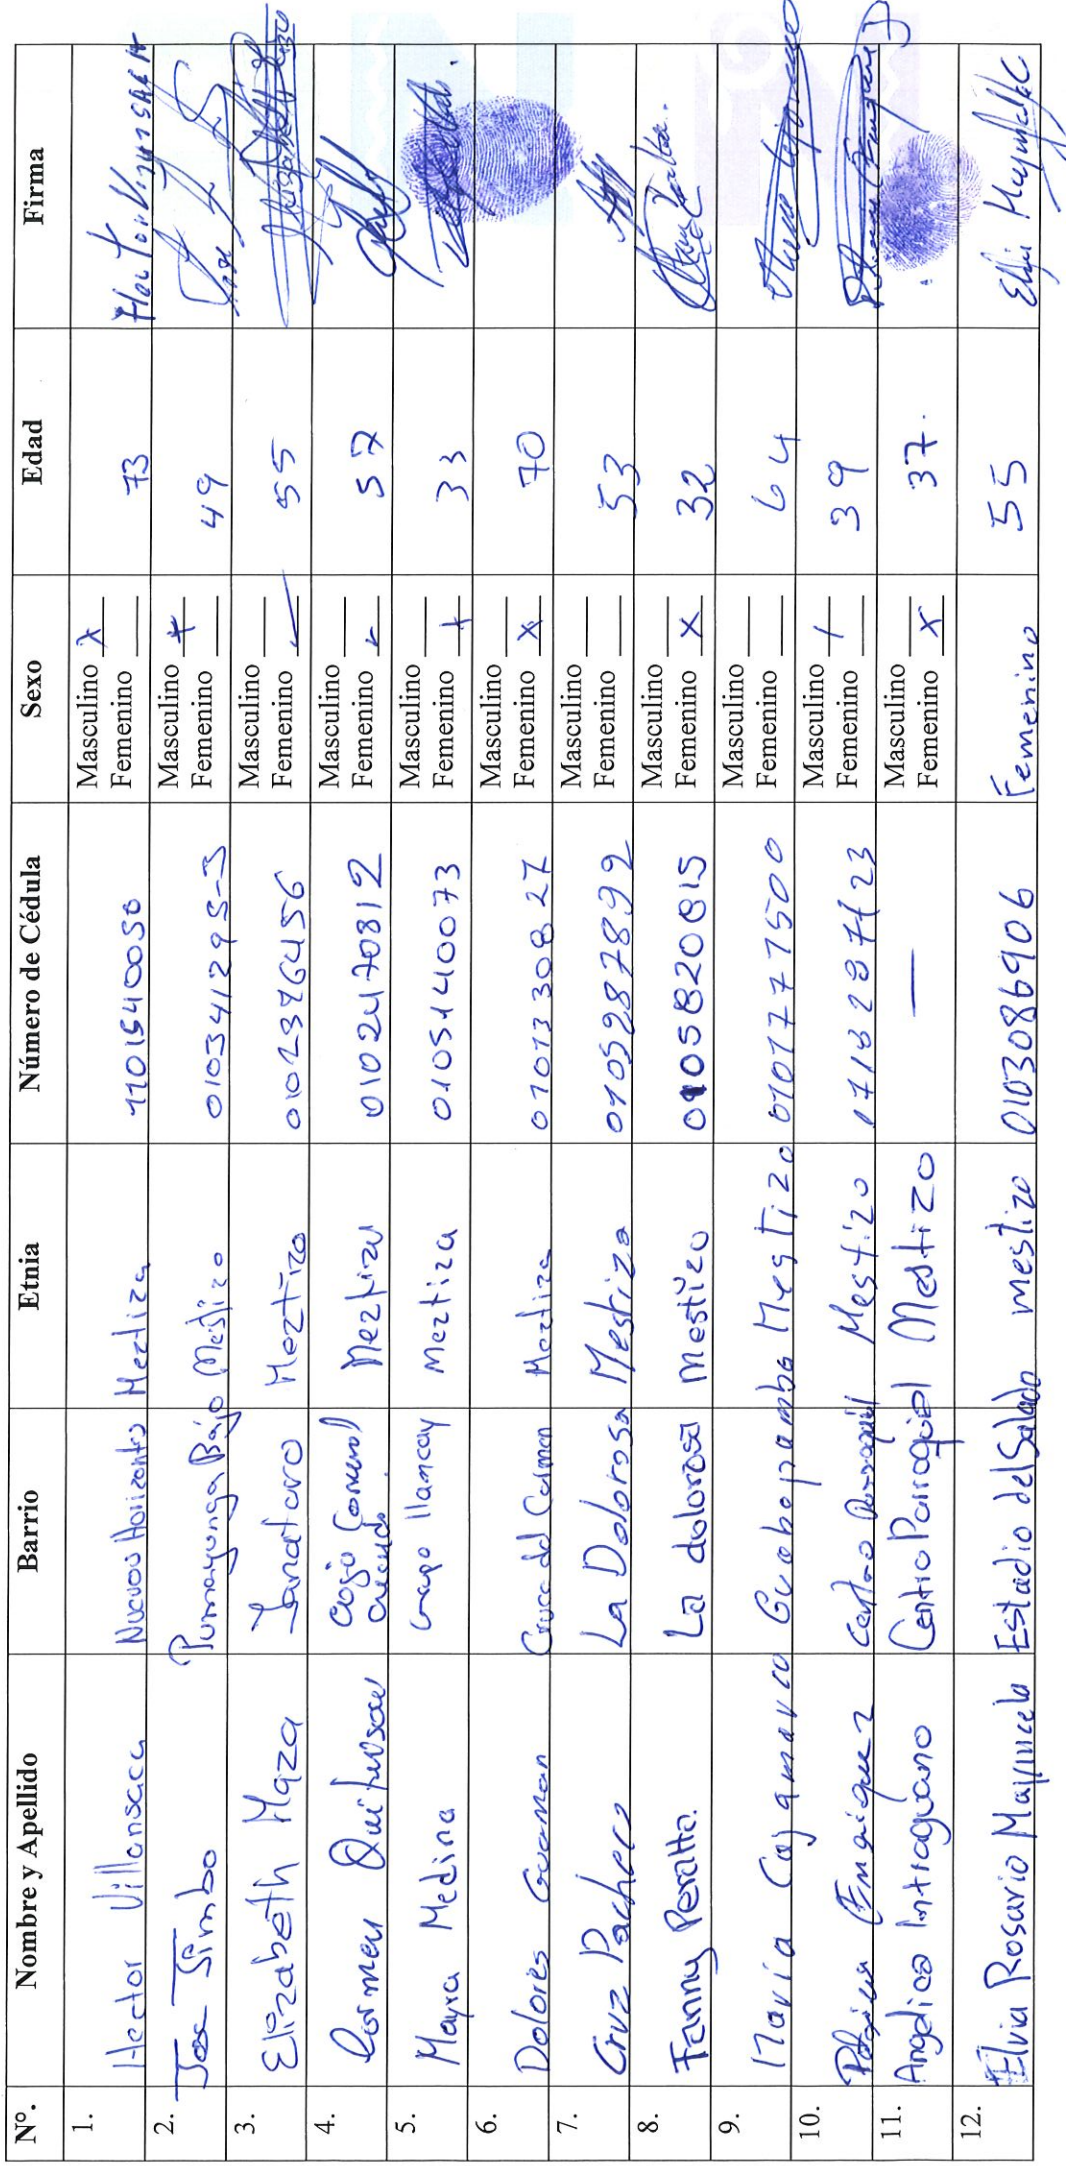 Nº. Nombre y Apellido Barrio Etnia Número de Cédula Sexo Edad Firma
1. Hector Villansaca Nuevos Horizontes Meztiza 1101540050 Masculino X Femenino __ 73
2. Jose Jimbo Pumayunga Bajo Mestizo 010341295-3 Masculino + Femenino __ 49
3. Elizabeth Maza Meztizo 0102376456 Masculino __ Femenino ✓ 55
4. Carmen Meztizo 0102470812 Masculino __ Femenino ✓ 57
5. Mayra Medina Grupo Ilamcay Meztiza 0105140073 Masculino __ Femenino + 33
6. Dolores Guaman Cruce del Carmen Meztiza 0101330827 Masculino __ Femenino X 70
7. Cruz Pacheco La Dolorosa Mestiza 0105987899 Masculino __ Femenino __ 53
8. Fanny Peralta. La dolorosa Mestizo 0105820815 Masculino __ Femenino X 32
9. Maria Cajamarca Guabopamba Mestizo 0101777500 Masculino __ Femenino __ 64
10. Centro Parroquial Mestizo Masculino / Femenino __ 39
11. Angelica Intriaguano Centro Parroquial Mestizo — Masculino __ Femenino X 37.
12. Elvia Rosario Mayancela Estadio del Salado mestizo 0103086906 Femenino 55